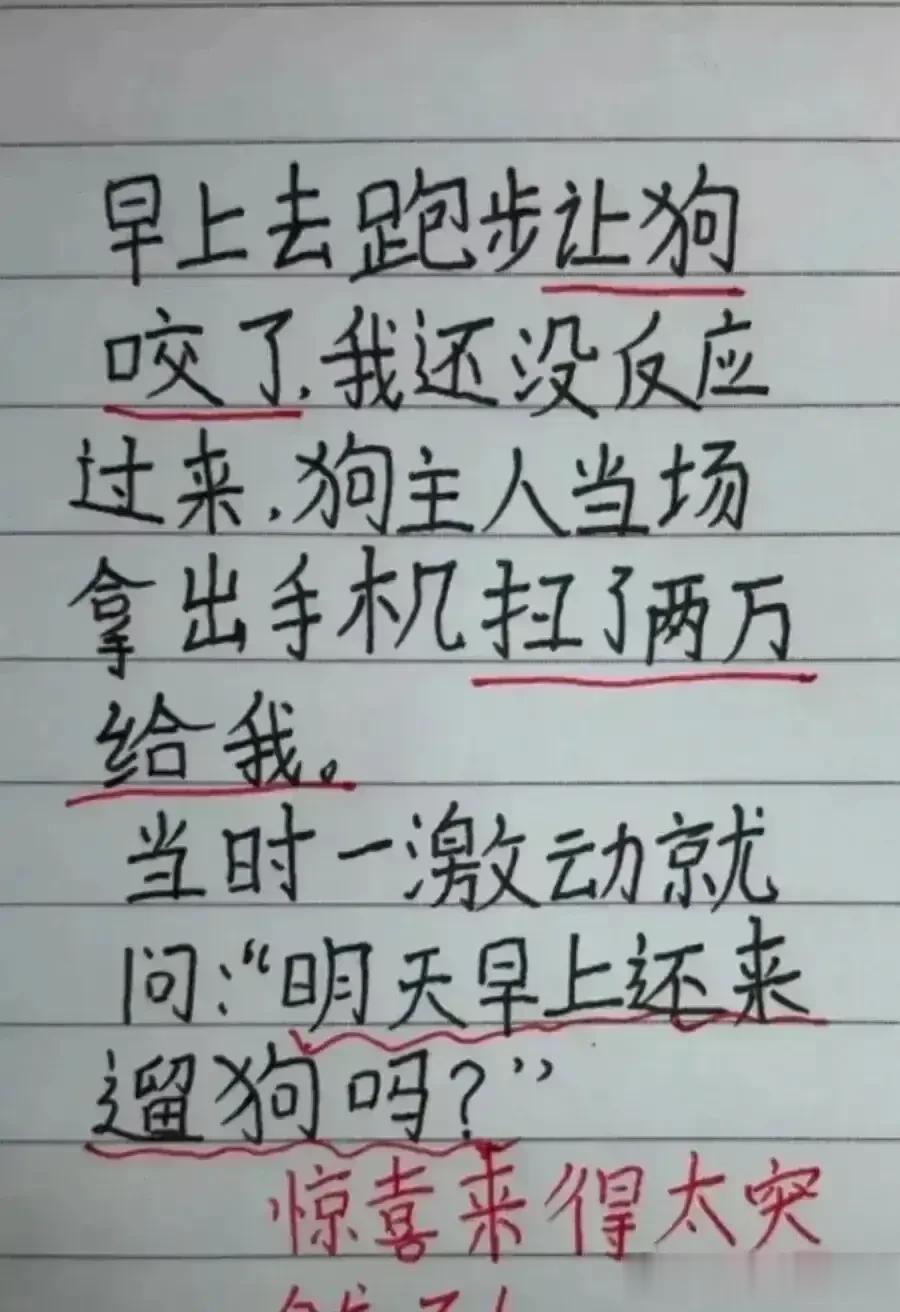 早上去跑步让狗
咬了,我还没反应
过来,狗主人当场
拿出手机扫了两万
给我。
当时一激动就
问:“明天早上还来
遛狗吗?”
惊喜来得太突